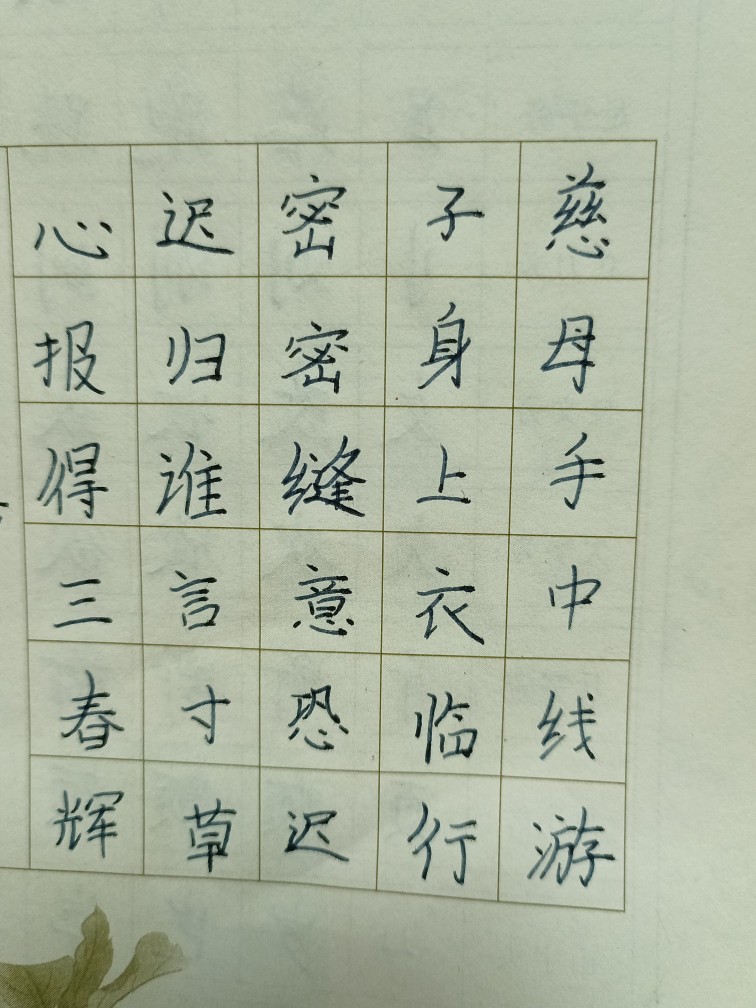 慈母手中线游
子身上衣临行
密密缝意恐迟
迟归谁言寸草
心报得三春辉